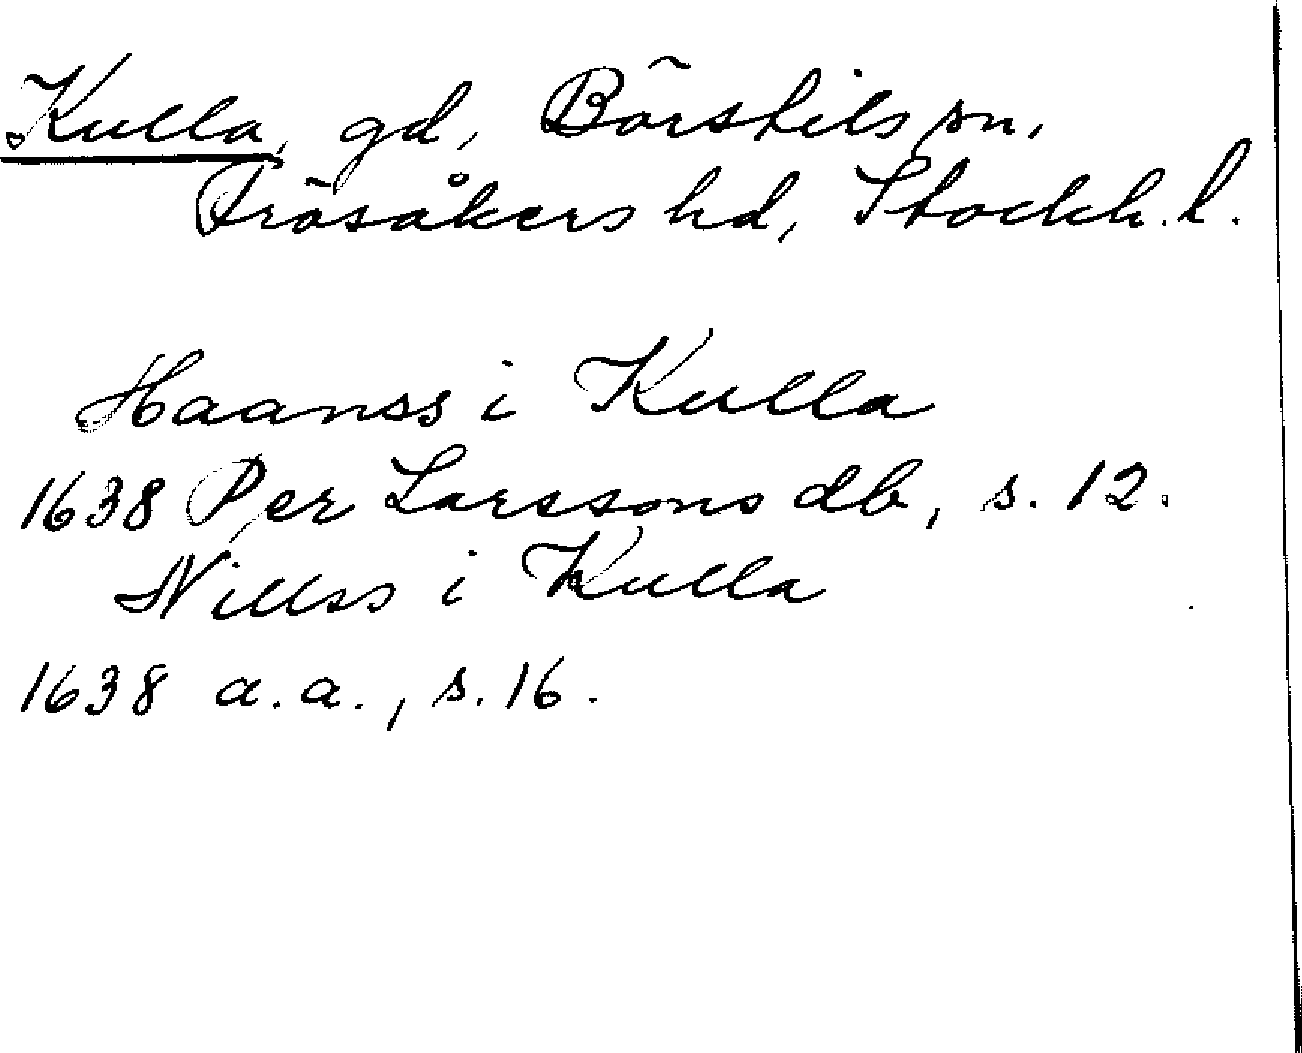 Kulla, gd, Börstils sn,
Frösåkers hd, Stockh. l.
Haanss i Kulla
1638 Per Larssons db, s. 12.
Nillss i Kulla
1638 a.a., s. 16.